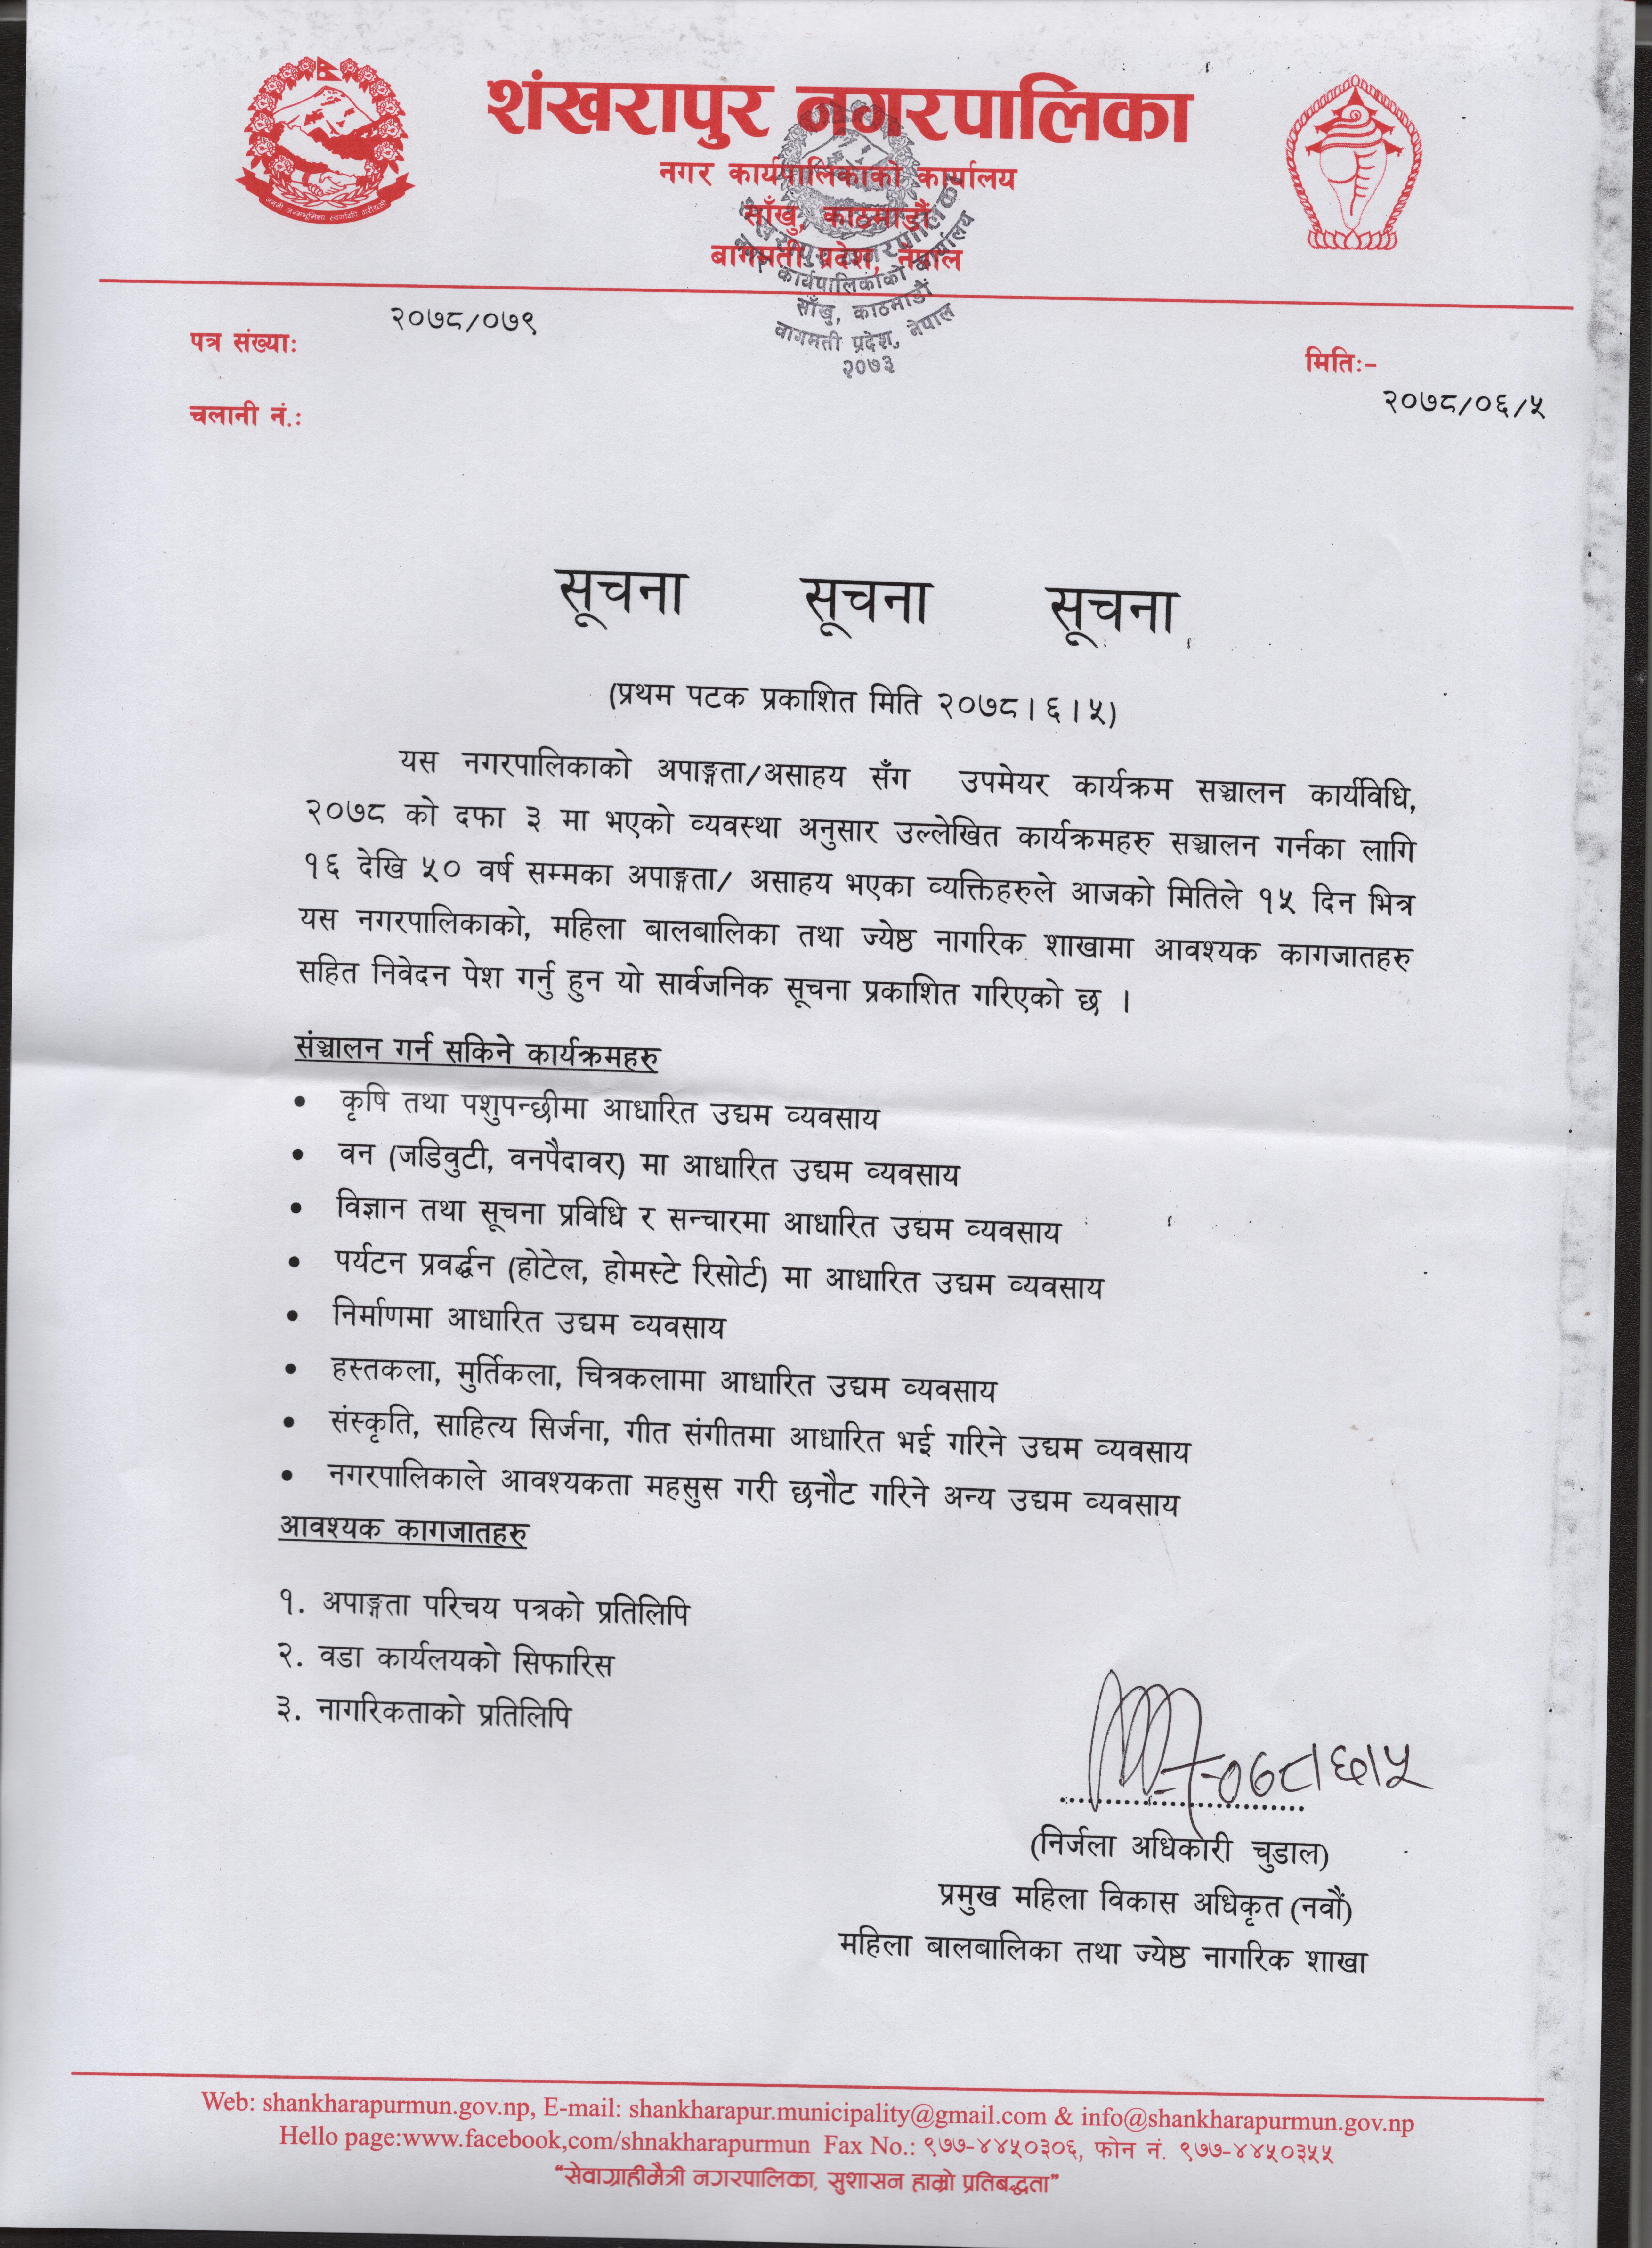 शंखरापुर नगरपालिका
नगर कार्यपालिकाको कार्यालय
साँखु, काठमाडौं
बागमती प्रदेश, नेपाल
जननी जन्मभूमिश्च स्वर्गादपि गरीयसी
शंखरापुर नगरपालिका
नगर कार्यपालिकाको कार्यालय
साँखु, काठमाडौं
वागमती प्रदेश, नेपाल
२०७३
पत्र संख्याः २०७८/०७९
मितिः-
२०७८/०६/५
चलानी नं.ः
सूचना सूचना सूचना
(प्रथम पटक प्रकाशित मिति २०७८।६।५)
यस नगरपालिकाको अपाङ्गता/असाहय सँग उपमेयर कार्यक्रम सञ्चालन कार्यविधि,
२०७८ को दफा ३ मा भएको व्यवस्था अनुसार उल्लेखित कार्यक्रमहरु सञ्चालन गर्नका लागि
१६ देखि ५० वर्ष सम्मका अपाङ्गता/ असाहय भएका व्यक्तिहरुले आजको मितिले १५ दिन भित्र
यस नगरपालिकाको, महिला बालबालिका तथा ज्येष्ठ नागरिक शाखामा आवश्यक कागजातहरु
सहित निवेदन पेश गर्नु हुन यो सार्वजनिक सूचना प्रकाशित गरिएको छ ।
संञ्चालन गर्न सकिने कार्यक्रमहरु
• कृषि तथा पशुपन्छीमा आधारित उद्यम व्यवसाय
• वन (जडिवुटी, वनपैदावर) मा आधारित उद्यम व्यवसाय
• विज्ञान तथा सूचना प्रविधि र सन्चारमा आधारित उद्यम व्यवसाय
• पर्यटन प्रवर्द्धन (होटेल, होमस्टे रिसोर्ट) मा आधारित उद्यम व्यवसाय
• निर्माणमा आधारित उद्यम व्यवसाय
• हस्तकला, मुर्तिकला, चित्रकलामा आधारित उद्यम व्यवसाय
• संस्कृति, साहित्य सिर्जना, गीत संगीतमा आधारित भई गरिने उद्यम व्यवसाय
• नगरपालिकाले आवश्यकता महसुस गरी छनौट गरिने अन्य उद्यम व्यवसाय
आवश्यक कागजातहरु
१. अपाङ्गता परिचय पत्रको प्रतिलिपि
२. वडा कार्यलयको सिफारिस
३. नागरिकताको प्रतिलिपि
०७८।६।५
(निर्जला अधिकारी चुडाल)
प्रमुख महिला विकास अधिकृत (नवौं)
महिला बालबालिका तथा ज्येष्ठ नागरिक शाखा
Web: shankharapurmun.gov.np, E-mail: shankharapur.municipality@gmail.com & info@shankharapurmun.gov.np
Hello page:www.facebook,com/shnakharapurmun Fax No.: ९७७-४४५०३०६, फोन नं. ९७७-४४५०३५५
“सेवाग्राहीमैत्री नगरपालिका, सुशासन हाम्रो प्रतिबद्धता”